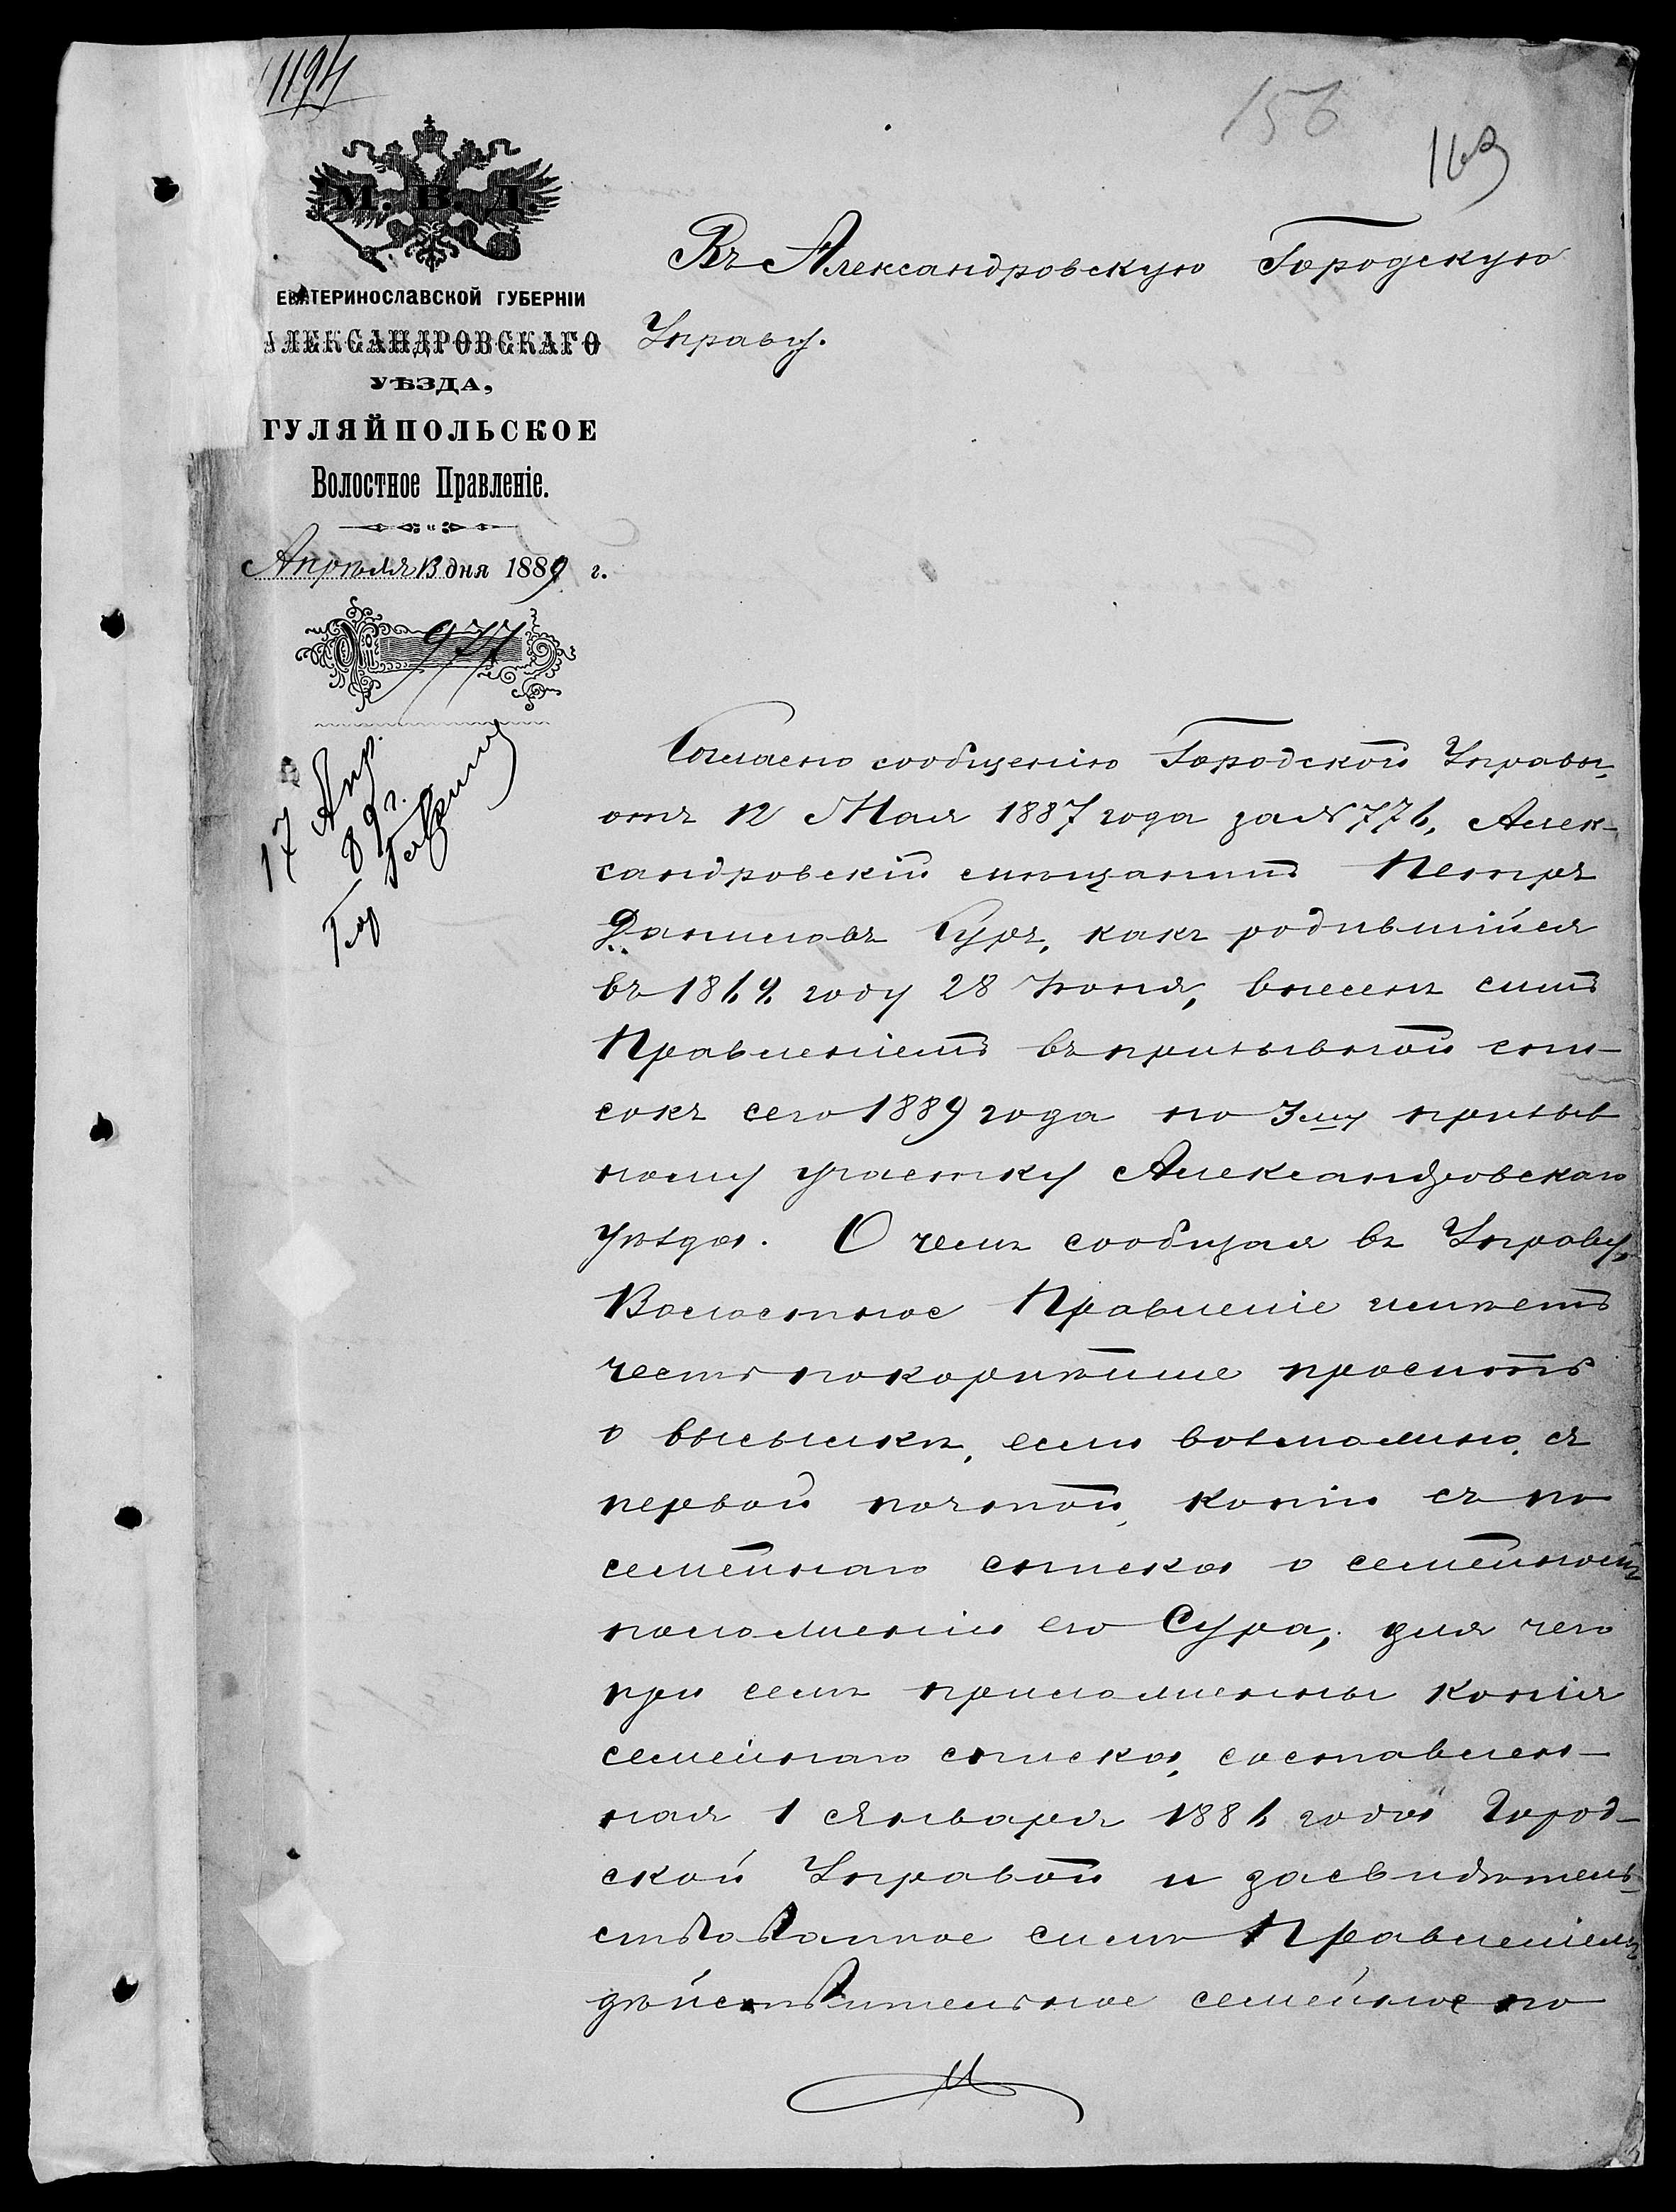 1194
156
163
М. В. Д.
ЕКАТЕРИНОСЛАВСКОЙ ГУБЕРНІИ
АЛЕКСАНДРОВСКАГО
УѢЗДА,
ГУЛЯЙПОЛЬСКОЕ
Волостное Правленіе.
Апрѣля 13 дня 1889 г.
№ 977
17 Апр.
89 г.
Въ Александровскую Городскую
Управу.
Согласно сообщенію Городской Управы,
отъ 12 Мая 1887 года за № 776, Алек-
сандровскій мѣщанинъ Петръ
Даниловъ Суръ, какъ родившійся
въ 1868 году 28 Іюня, внесенъ симъ
Правленіемъ въ призывной спи-
сокъ сего 1889 года по 3му призыв
ному участку Александровскаго
уѣзда. О чемъ сообщая въ Управу,
Волостное Правленіе имѣетъ
честь покорнѣйше просить
о высылкѣ, если возможно, съ
первой почтой, копію съ по
семейнаго списка о семейномъ
положеніи его Сура, для чего
при семъ приложенны копія
семейнаго списка, составлен-
ная 1 Января 1886 года Город-
ской Управой и засвидѣтель-
ствованное симъ Правленіемъ
дѣйствительное семейное по